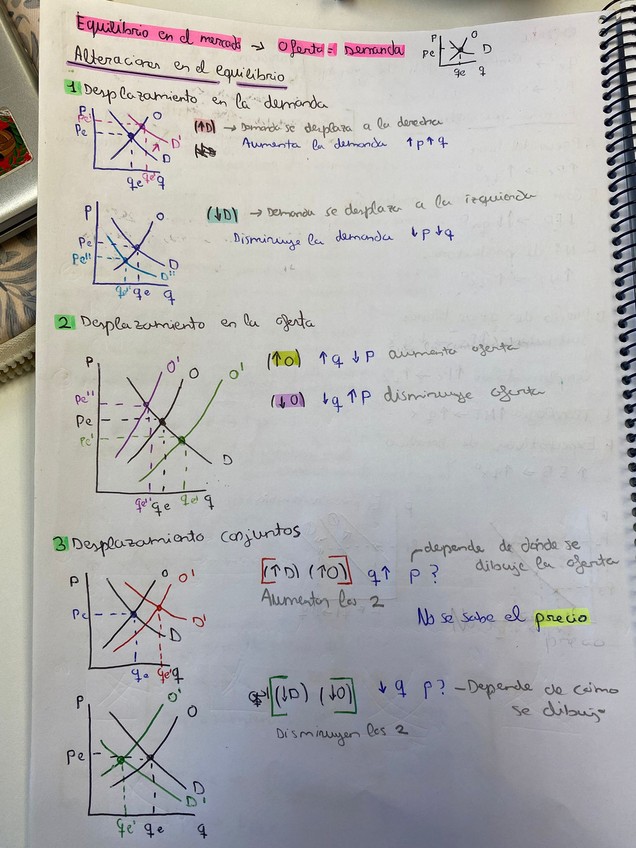 Equilibrio en el mercado → Oferta = Demanda
P O
Pe D
qe q
Alteraciones en el equilibrio
1 Desplazamiento en la demanda
P O
Pe'
Pe D'
D
qe qe' q
(↑D) → Demanda se desplaza a la derecha
Aumenta la demanda ↑p↑q
P O
Pe
Pe'' D
D''
qe'' qe q
(↓D) → Demanda se desplaza a la izquierda
Disminuye la demanda ↓p↓q
2 Desplazamiento en la oferta
P O' O O'
Pe''
Pe
Pe'
D
qe'' qe qe' q
(↑O) ↑q ↓p aumenta oferta
(↓O) ↓q ↑p disminuye oferta
3 Desplazamiento conjuntos
P O O'
Pe D'
D
qe qe' q
[(↑D) (↑O)] q↑ p?
Aumentan los 2
depende de dónde se
dibuje la oferta
No se sabe el precio
P O' O
Pe
D
D'
qe' qe q
[(↓D) (↓O)] ↓q p? - Depende de cómo
se dibuje
Disminuyen los 2